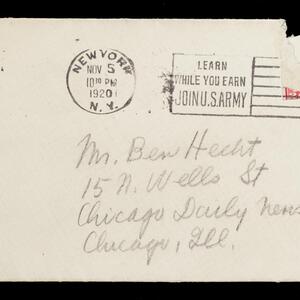 NEW YORK
NOV 5
10 30 PM
1920
N.Y.
LEARN
WHILE YOU EARN
JOIN U.S. ARMY
Mr. Ben Hecht
15 N. Wells St
Chicago Daily News
Chicago, Ill.